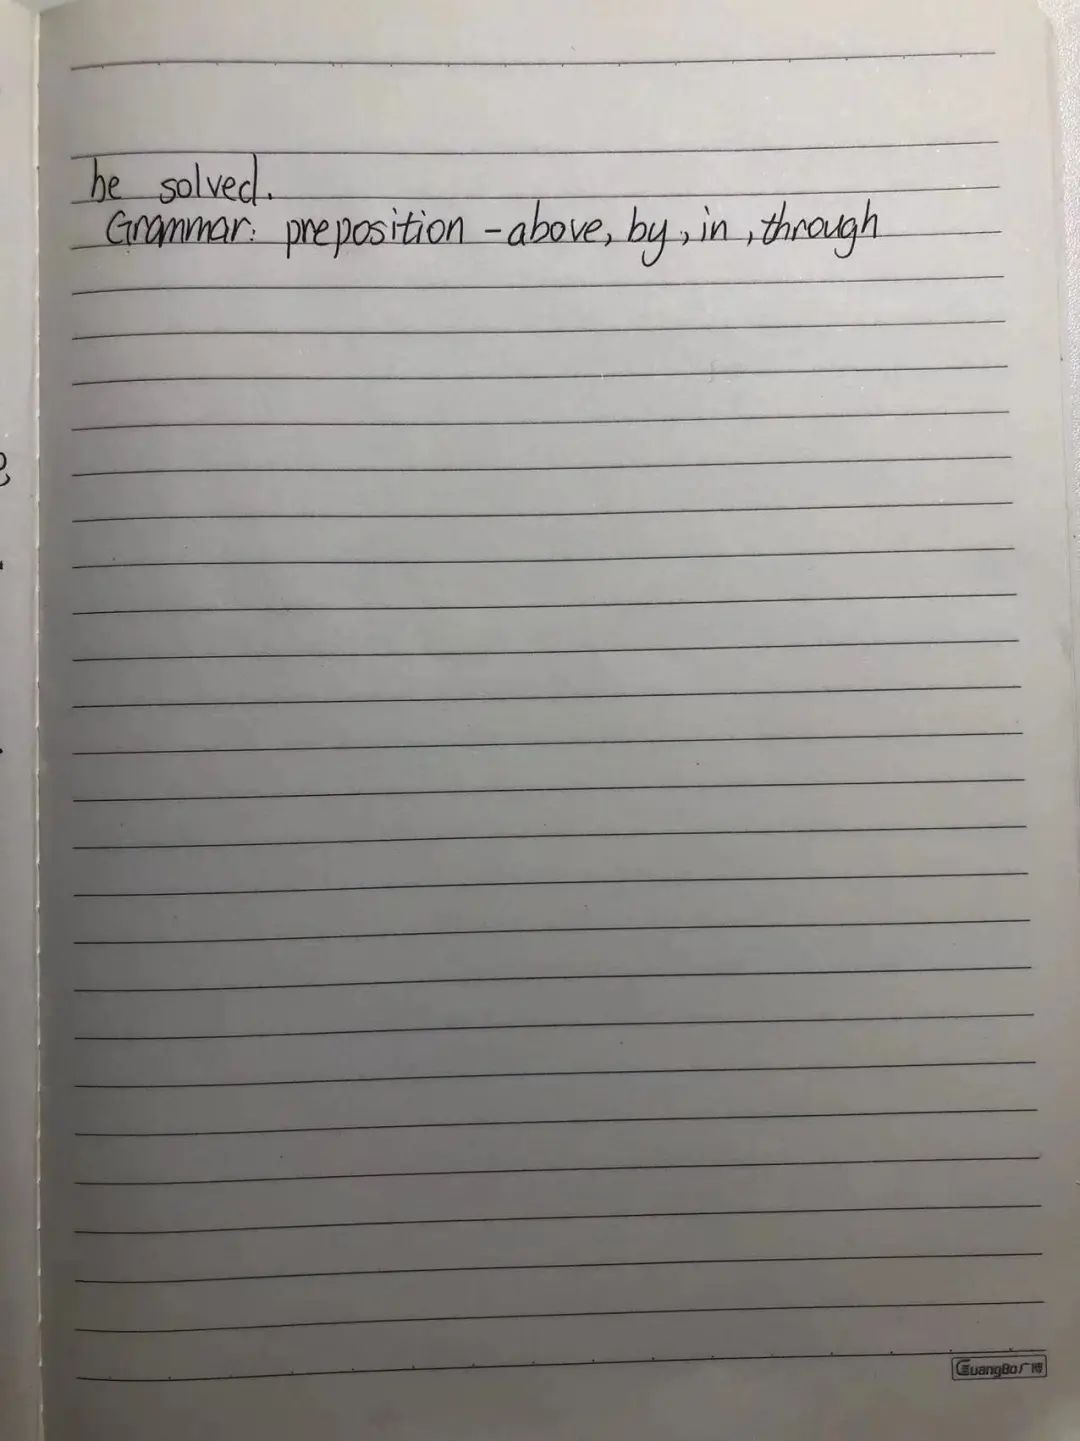 be solved.
Grammar: preposition - above, by, in, through
GuangBo广博